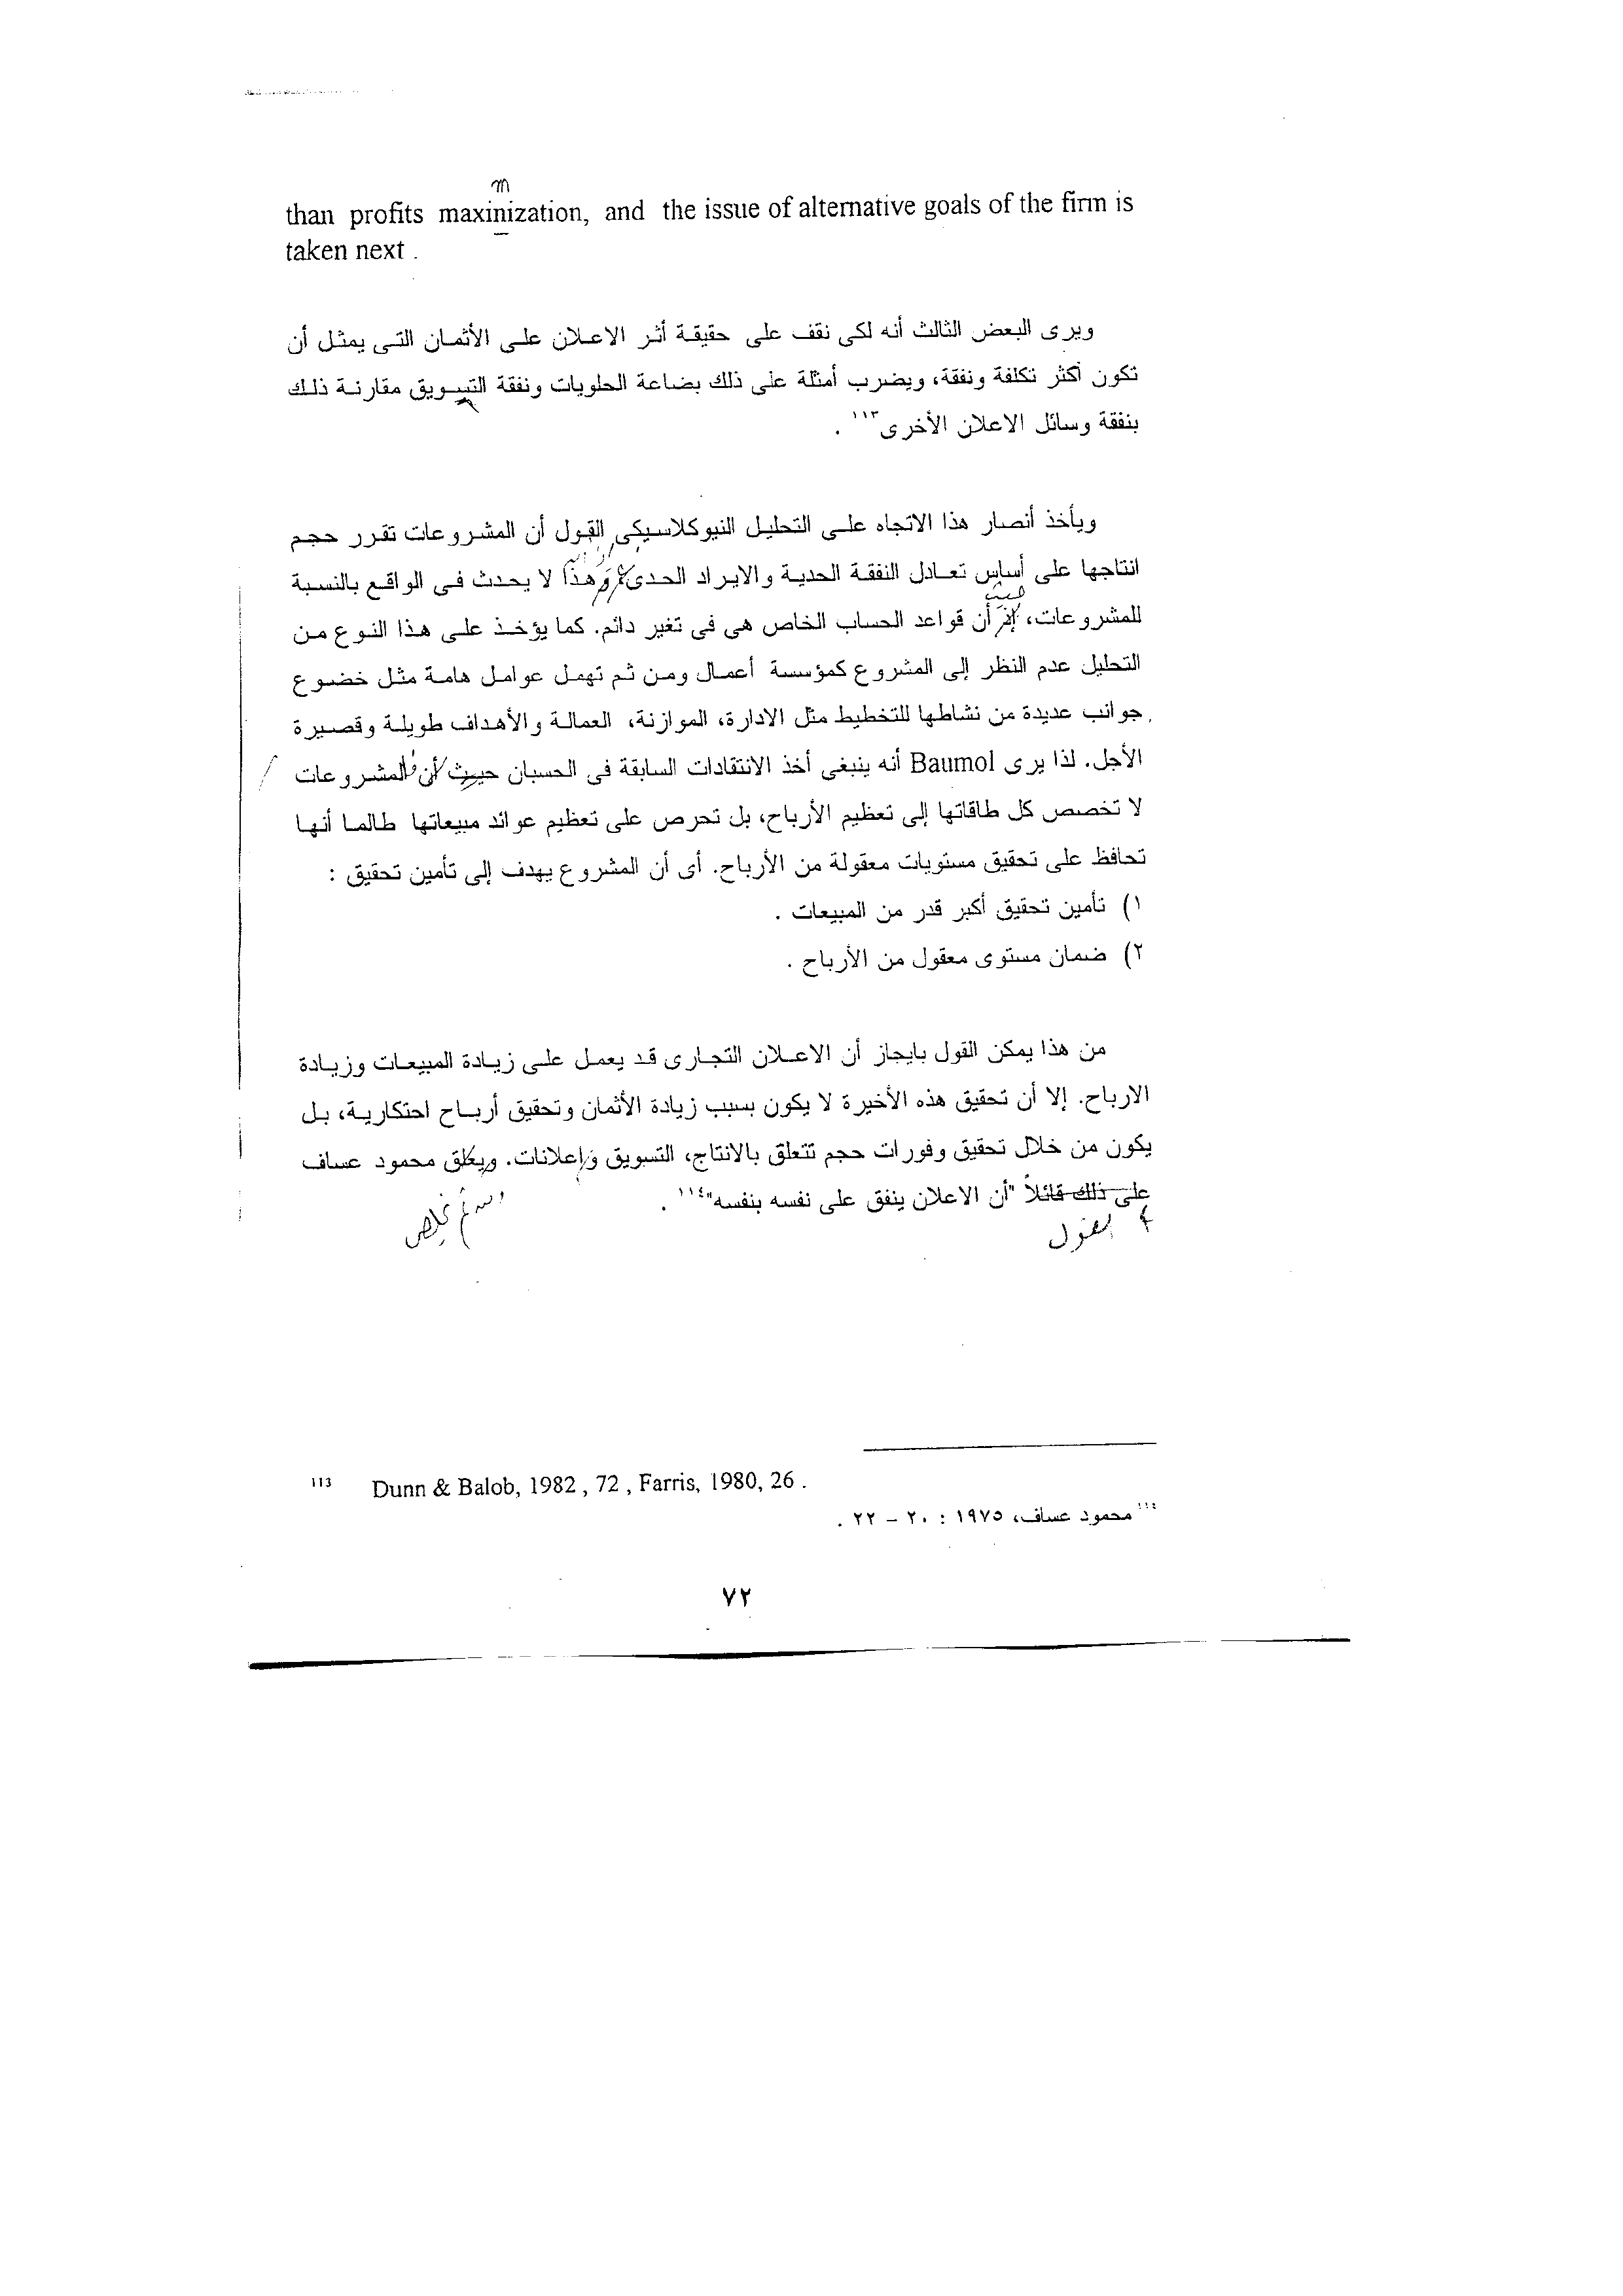 than profits maxinization, and the issue of alternative goals of the firm is
m
taken next .
ويرى البعض الثالث أنه لكى نقف على حقيقة أثر الاعلان على الأثمان التى يمثل أن
تكون أكثر تكلفة ونفقة، ويضرب أمثلة على ذلك بضاعة الحلويات ونفقة التسويق مقارنة ذلك
بنفقة وسائل الاعلان الأخرى١١٣ .
ويأخذ أنصار هذا الاتجاه على التحليل النيوكلاسيكى القول أن المشروعات تقرر حجم
انتاجها على أساس تعادل النفقة الحدية والايراد الحدى، وهذا لا يحدث فى الواقع بالنسبة
للمشروعات، إذ أن قواعد الحساب الخاص هى فى تغير دائم. كما يؤخذ على هذا النوع من
التحليل عدم النظر إلى المشروع كمؤسسة أعمال ومن ثم تهمل عوامل هامة مثل خضوع
جوانب عديدة من نشاطها للتخطيط مثل الادارة، الموازنة، العمالة والأهداف طويلة وقصيرة
الأجل. لذا يرى Baumol أنه ينبغى أخذ الانتقادات السابقة فى الحسبان حيث أن المشروعات
لا تخصص كل طاقاتها إلى تعظيم الأرباح، بل تحرص على تعظيم عوائد مبيعاتها طالما أنها
تحافظ على تحقيق مستويات معقولة من الأرباح. أى أن المشروع يهدف إلى تأمين تحقيق :
١) تأمين تحقيق أكبر قدر من المبيعات .
٢) ضمان مستوى معقول من الأرباح .
من هذا يمكن القول بايجاز أن الاعلان التجارى قد يعمل على زيادة المبيعات وزيادة
الارباح. إلا أن تحقيق هذه الأخيرة لا يكون بسبب زيادة الأثمان وتحقيق أرباح احتكارية، بل
يكون من خلال تحقيق وفورات حجم تتعلق بالانتاج، التسويق وإعلانات. ويعلق محمود عساف
على ذلك قائلاً "أن الاعلان ينفق على نفسه بنفسه"١١٤ .
113 Dunn & Balob, 1982 , 72 , Farris, 1980, 26 .
١١٤ محمود عساف، ١٩٧٥ : ٢٠ – ٢٢ .
٧٢